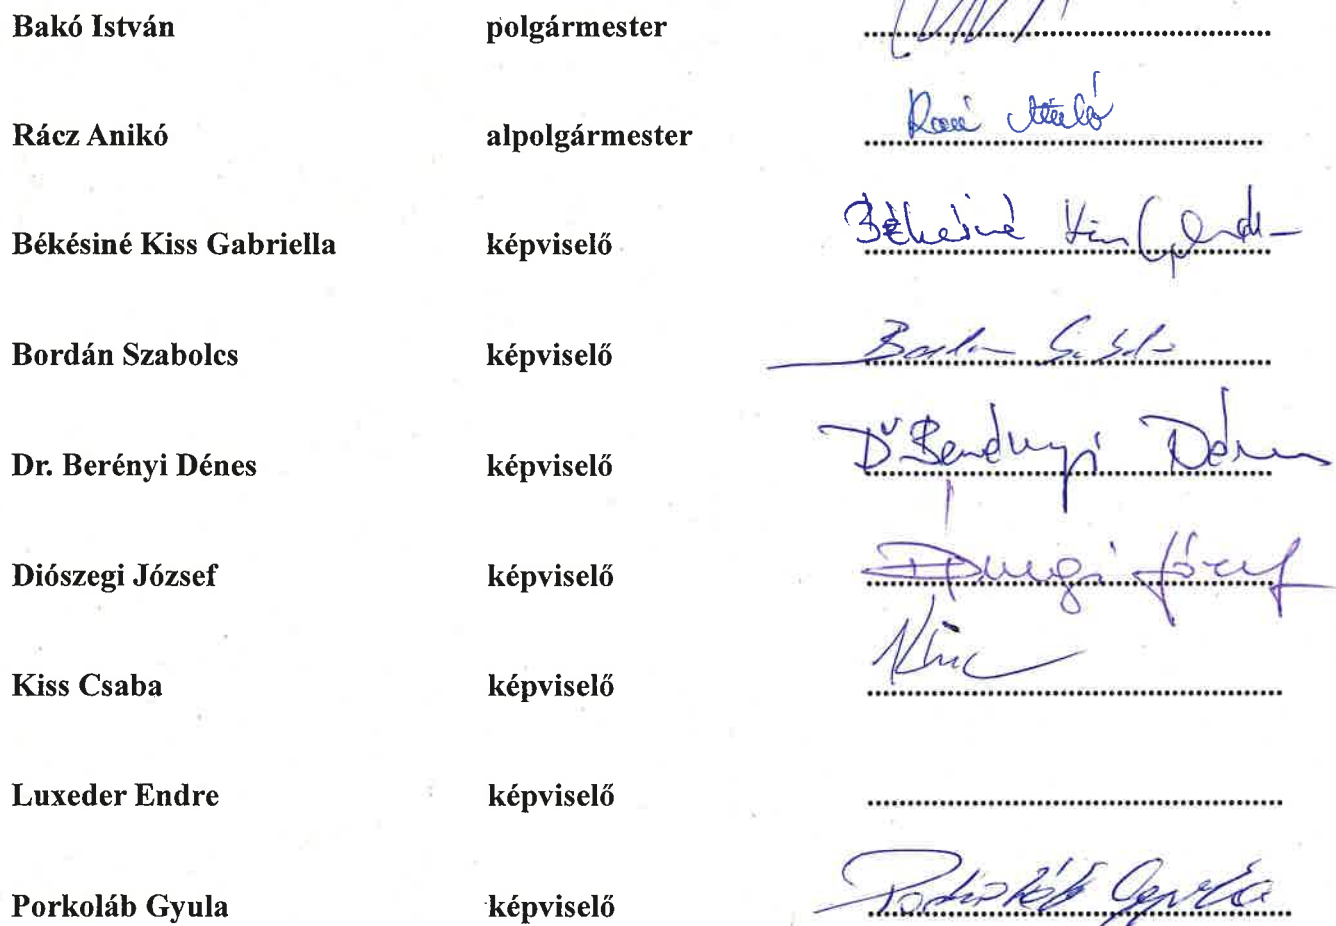 Bakó István polgármester
Rácz Anikó alpolgármester Rácz Anikó
Békésiné Kiss Gabriella képviselő Békésiné Kiss Gabriella
Bordán Szabolcs képviselő
Dr. Berényi Dénes képviselő Dr Berényi Dénes
Diószegi József képviselő József
Kiss Csaba képviselő
Luxeder Endre képviselő
Porkoláb Gyula képviselő Porkoláb Gyula